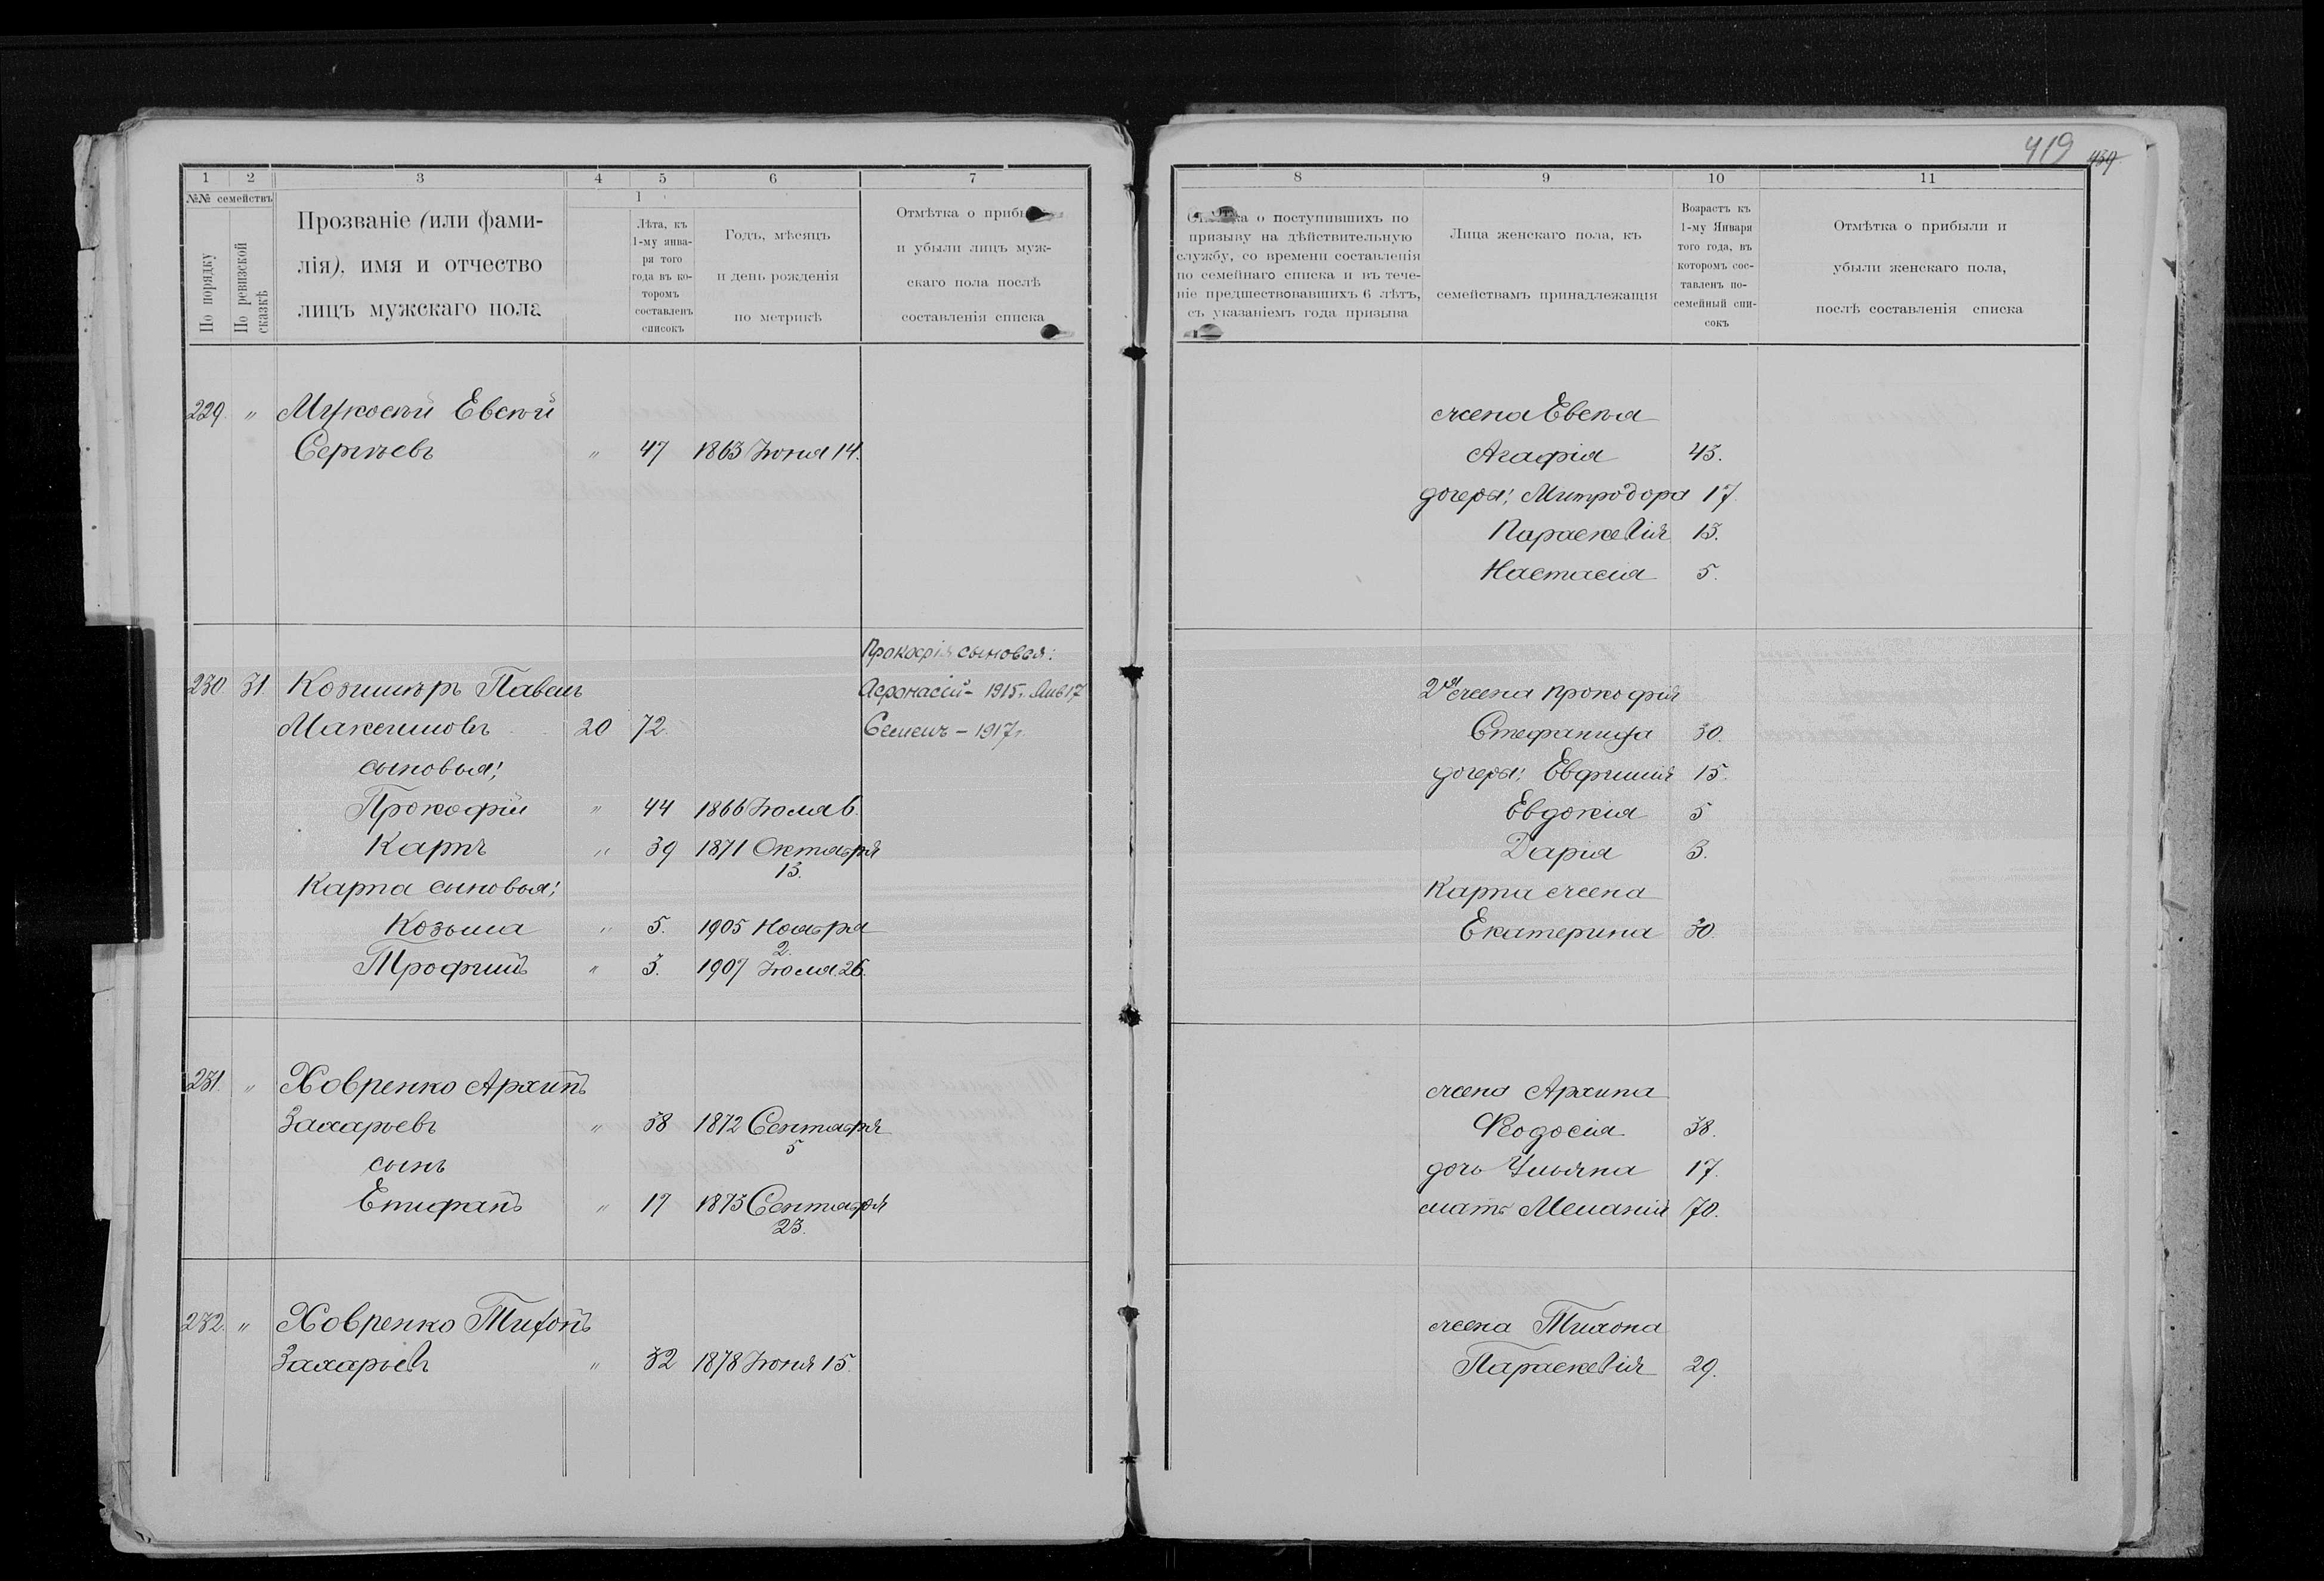 419 439
1 2 3 4 5 6 7
№№ семействъ
По порядку
По ревизской сказкѣ
Прозваніе (или фами-
лія), имя и отчество
лицъ мужскаго пола
1
Лѣта, къ
1-му янва-
ря того
года въ ко-
торомъ
составленъ
списокъ
Годъ, мѣсяцъ
и день рожденія
по метрикѣ
Отмѣтка о прибы
и убыли лицъ муж-
скаго пола послѣ
составленія списка
229. " Евсѣй
Сергѣевъ " 47 1863 Іюня 14.
Прокофія сыновья:
230 31 Павелъ Афонасій - 1915 г. Янв 17
Максимовъ 20 72. Семенъ - 1917 г.
сыновья:
Прокофій " 44 1866 Іюля 6.
Карпъ " 39 1871 Октября
13.
Карпа сыновья:
Козьма " 5. 1905 Ноября
2.
Трофимъ " 3. 1907 Іюля 26.
231. " Ховренко Архипъ
Захарьевъ " 38 1872 Сентября
5
сынъ
Епифанъ " 17 1873 Сентября
23.
232. " Ховренко Тихонъ
Захарьевъ " 32 1878 Іюня 15.
8 9 10 11
о поступившихъ по
призыву на дѣйствительную
службу, со времени составленія
по семейнаго списка и въ тече-
ніе предшествовавшихъ 6 лѣтъ,
съ указаніемъ года призыва
Лица женскаго пола, къ
семействамъ принадлежащія
Возрастъ къ
1-му Января
того года, въ
которомъ сос-
тавленъ по-
семейный спи-
сокъ
Отмѣтка о прибыли и
убыли женскаго пола,
послѣ составленія списка
жена Евсѣя
Агафія 45.
дочери: Митродора 17.
Параскевія 13.
Настасія 5.
2я жена Прокофія
Стефанида 30.
дочери: Евфимія 15.
Евдокія 5
Дарія 3.
Карпа жена
Екатерина 30.
жена Архипа
Феодосія 38.
дочь Ульяна 17.
мать Меланія 70.
жена Тихона
Параскевія 29.